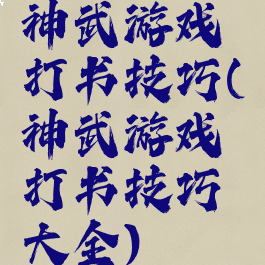 神武游戏
打书技巧(
神武游戏
打书技巧
大全)